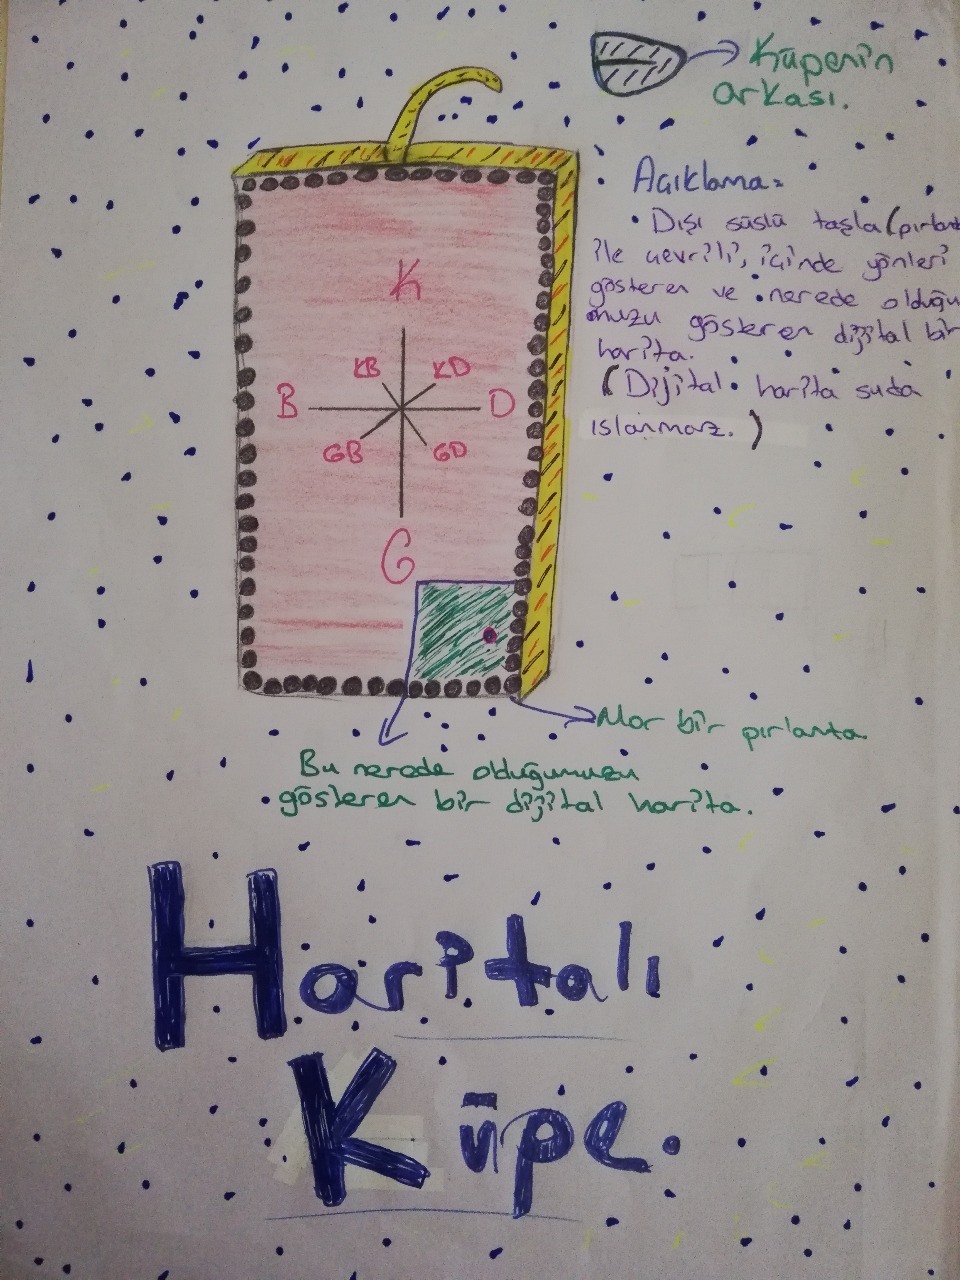 Küpenin
arkası.
Açıklama:
• Dışı süslü taşla (pırlant
ile çevrili, içinde yönleri
gösteren ve nerede olduğu
muzu gösteren dijital bir
harita.
(Dijital harita suda
ıslanmaz.)
K
KB KD
B D
GB GD
G
Mor bir pırlanta.
Bu nerede olduğumuzu
gösteren bir dijital harita.
Haritalı
Küpe.